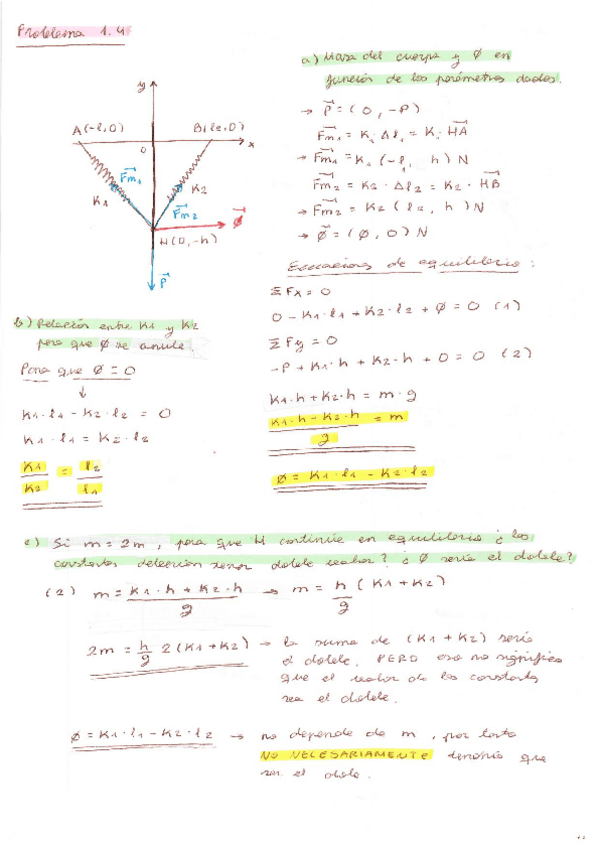 Problema 1.4
y
A(-l,0)
B(l2,0)
0
x
Fm1
K1
K2
Fm2
Φ
H(0,-h)
P
a) Masa del cuerpo y Φ en
función de los parámetros dados.
→ P = (0, -P)
Fm1 = K1 · Δl1 = K1 · HA
→ Fm1 = K1 (-l1, h) N
Fm2 = K2 · Δl2 = K2 · HB
→ Fm2 = K2 (l2, h) N
→ Φ = (Φ, 0) N
Ecuaciones de equilibrio:
ΣFx = 0
0 - K1·l1 + K2·l2 + Φ = 0 (1)
ΣFy = 0
-P + K1·h + K2·h + 0 = 0 (2)
K1·h + K2·h = m·g
K1·h - K2·h / g = m
Φ = K1·l1 - K2·l2
b) Relación entre K1 y K2
para que Φ se anule.
Para que Φ = 0
↓
K1·l1 - K2·l2 = 0
K1·l1 = K2·l2
K1 / K2 = l2 / l1
c) Si m = 2m, para que H continúe en equilibrio ¿los
constantes deberían tener doble valor? ¿Φ sería el doble?
(2) m = K1·h + K2·h / g → m = h / g (K1 + K2)
2m = h / g 2(K1 + K2) → la suma de (K1 + K2) sería
el doble. PERO eso no significa
que el valor de las constantes
sea el doble.
Φ = K1·l1 - K2·l2 → no depende de m, por tanto
NO NECESARIAMENTE tendría que
ser el doble.